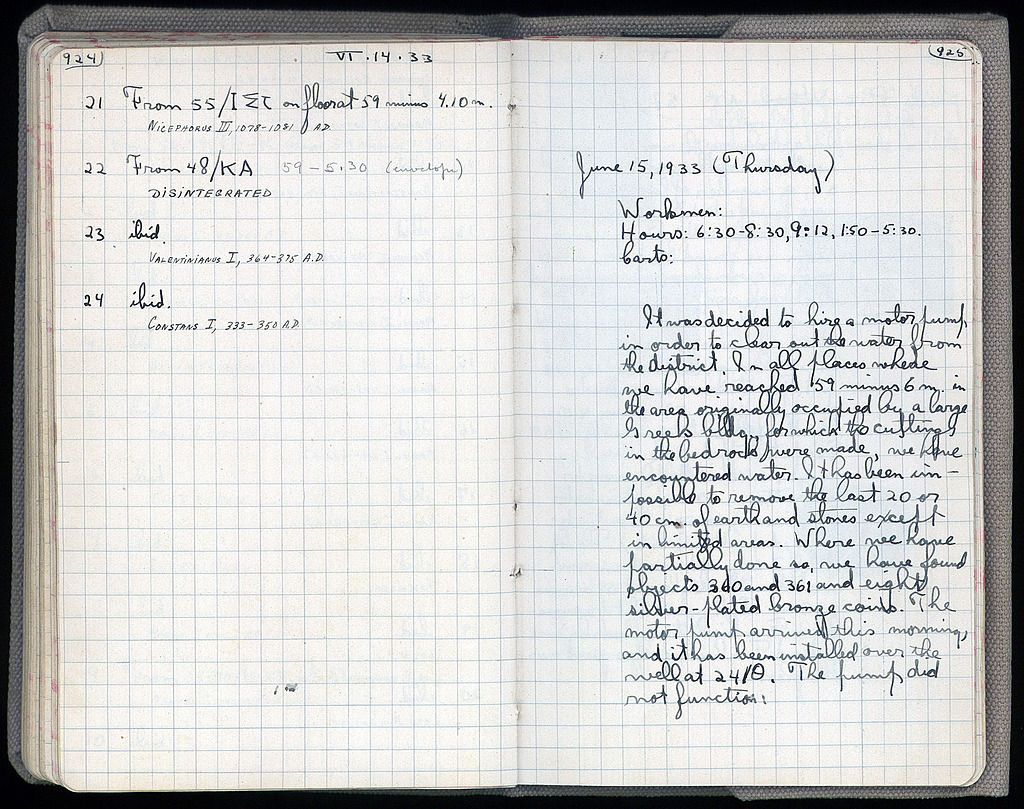 924
VI·14·33
21 From 55/ΙΣΤ on floor at 59 minus 4.10 m.
NICEPHORUS III, 1078-1081 A.D.
22 From 48/ΚΑ 59-5.30 (envelope)
DISINTEGRATED
23 ibid.
VALENTINIANUS I, 364-375 A.D.
24 ibid.
CONSTANS I, 333-350 A.D.
925
June 15, 1933 (Thursday)
Workmen:
Hours: 6:30-8:30, 9-12, 1:50-5:30.
Carts:
It was decided to hire a motor pump
in order to clear out the water from
the district. In all places where
we have reached 59 minus 6 m. in
the area originally occupied by a large
Greek bldg. for which the cuttings
in the bedrock were made, we have
encountered water. It has been im-
possible to remove the last 20 or
40 cm. of earth and stones except
in limited areas. Where we have
partially done so, we have found
objects 360 and 361 and eight
silver-plated bronze coins. The
motor pump arrived this morning,
and it has been installed over the
well at 24/Θ. The pump did
not function: